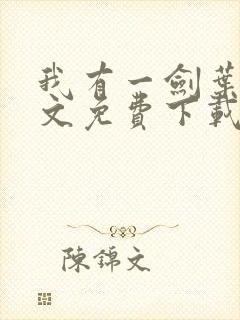 我有一劍葉
文免費下載
陳錦文